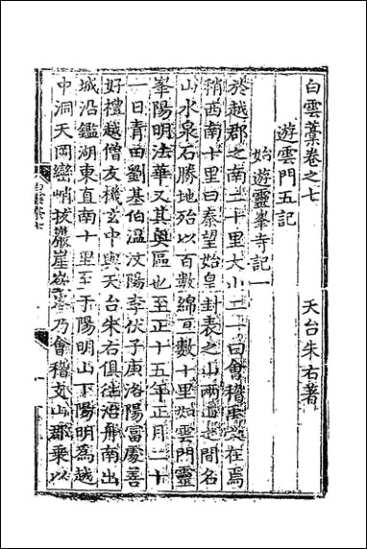 白雲藁卷之七
天台朱右著
遊雲門五記
始遊靈峯寺記一
於越郡之南二十里大小二十曰會稽禹在焉
稍西南十里曰秦望始皇封表之山兩間名
山水泉石勝地殆以百數綿亘數十里如雲門靈
峯陽明法華又其奧區也至正十五年正月二十
一日青田劉基伯溫汶陽李伏子庚洛陽富慶善
好禮越僧友機玄中與天台朱右俱往治舟南出
城沿鑑湖東直南十里至于陽明山下陽明為越
中洞天岡巒峭拔巖崖乃會稽支山郡乗以
白雲藁七